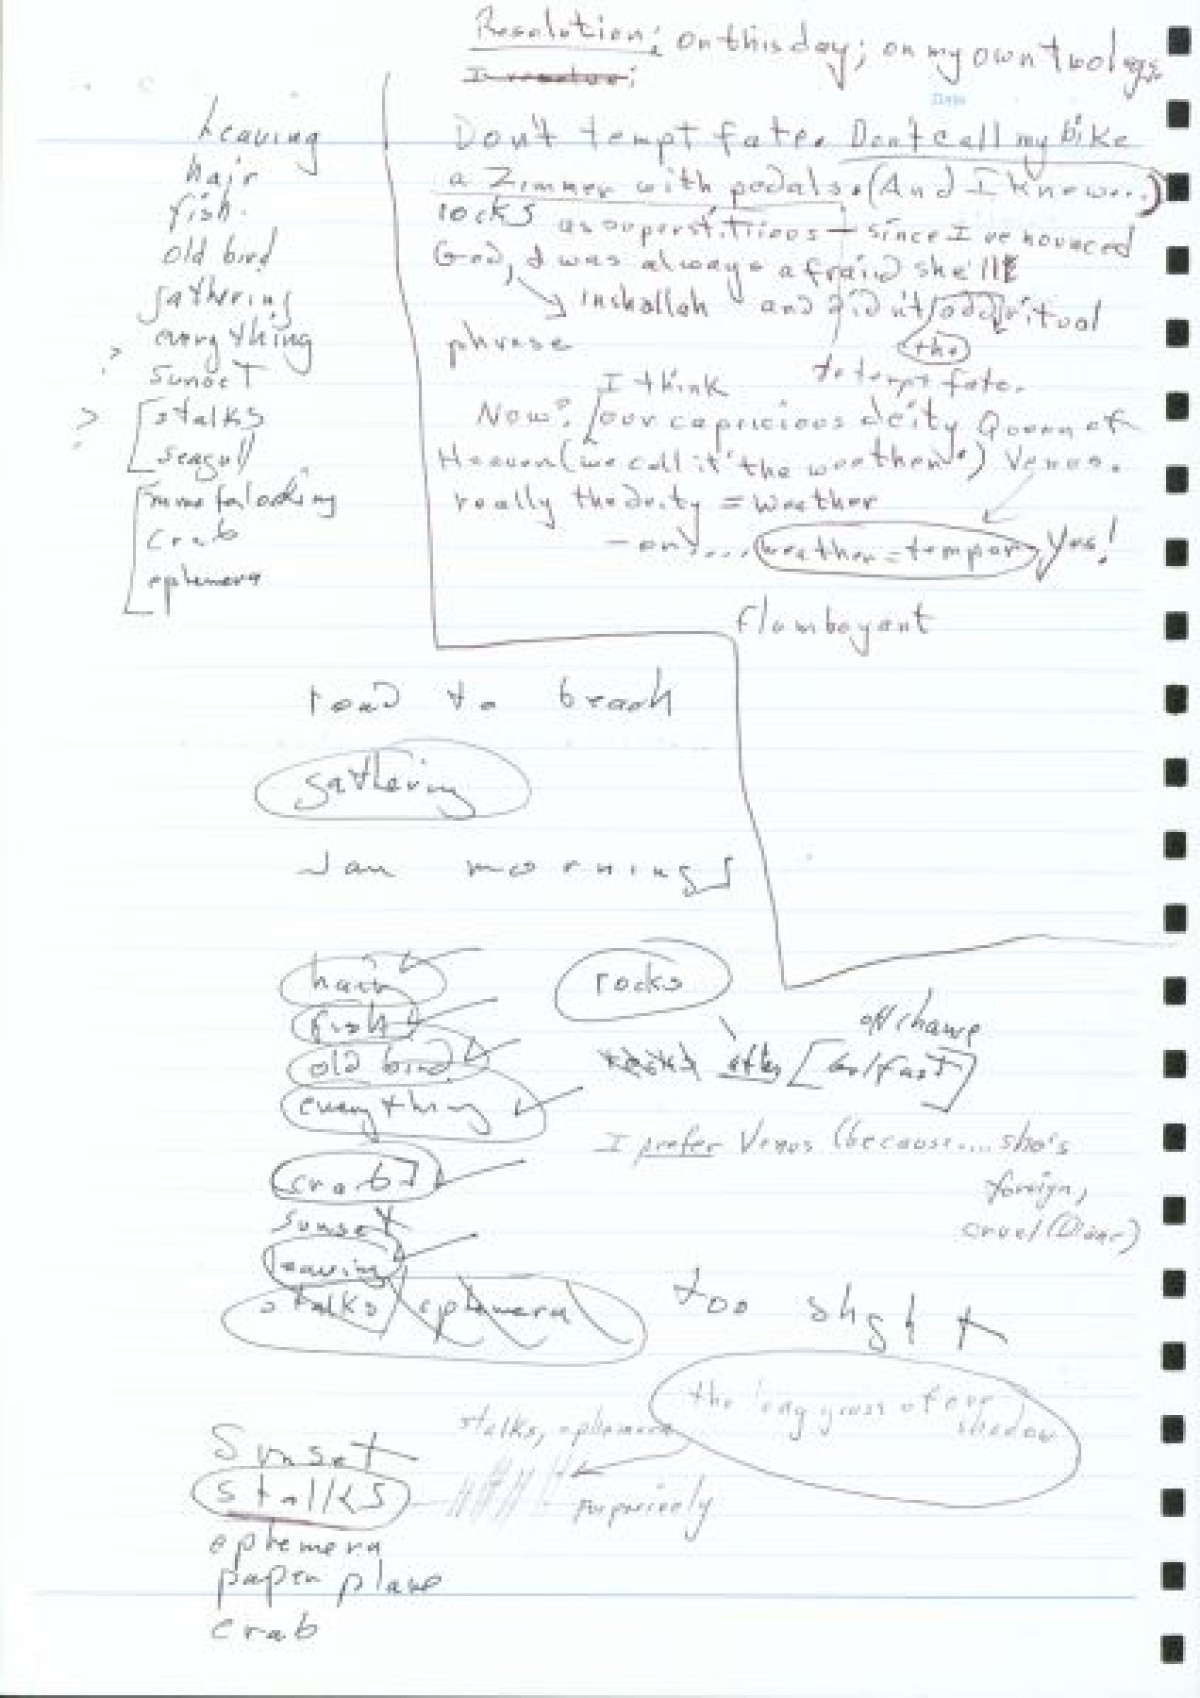 Resolution: on this day; on my own two legs
leaving
hair
fish.
old bird
gathering
everything
? sunset
? stalks
seagull
crab
ephemera
Don't tempt fate. Don't call my bike
a Zimmer with pedals. (And I know...)
rocks as superstitious - since I
God, I was always afraid she'll
inshallah and didn't add ritual
the
phrase
to tempt fate.
I think
Now? our capricious deity Queen of
Heaven (we call it "the weather") Venus.
really the deity = weather
weather = temper Yes!
flamboyant
road to beach
gathering
Jan mornings
hair
fish
old bird
everything
crab
sunset
leaving
stalks ephemera
rocks
after
I prefer Venus (because.... she's
foreign,
cruel
too
the long grass of our
shadow
stalks, ephemera
Sunset
stalks
ephemera
paper plane
crab